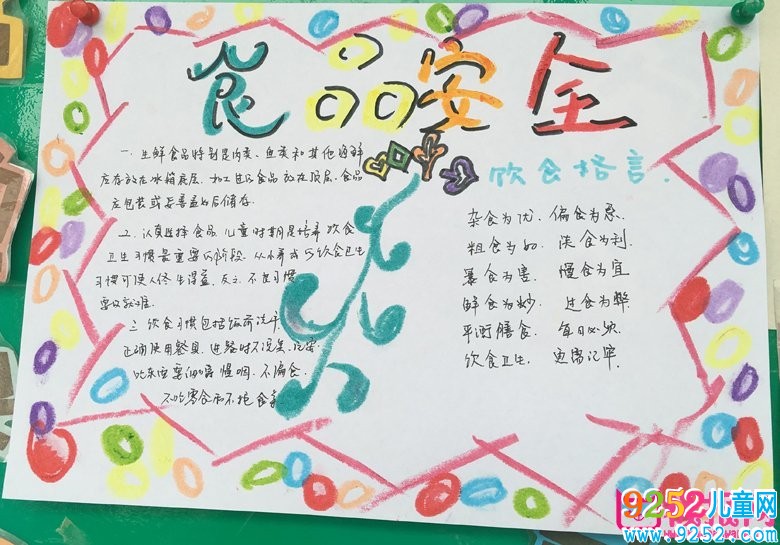 食品安全
一、生鲜食品特别是肉类、鱼类和其他海鲜
应存放在冰箱底层,加工过的食品放在顶层,食品
应包装或妥善盖好后储存.
二、认真选择食品,儿童时期是培养饮食
卫生习惯最重要的阶段,从小养成巧饮食卫生
习惯可使人终生得益,反之,不良习惯
要改就难.
三、饮食习惯包括饭前洗手,
正确使用餐具,进餐时不谈笑、
吃东西要细嚼慢咽,不偏食,
不吃零食和不挑食等
饮食格言.
杂食为优,偏食为忌.
粗食为好,淡食为利.
暴食为害,慢食为宜
鲜食为妙,过食为弊.
平衡膳食,每日必须.
饮食卫生,更需记牢.
9252儿童网
www.9252.com